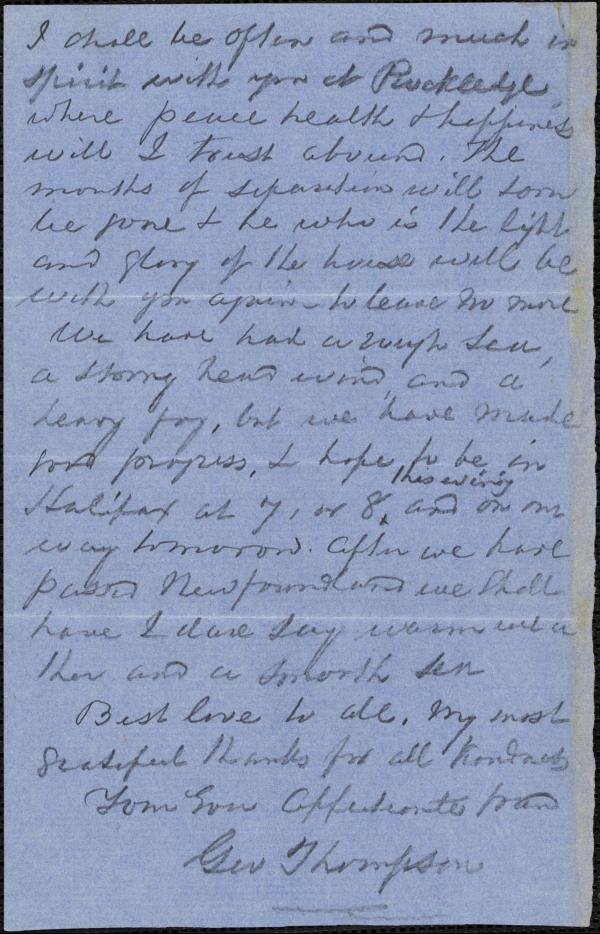 I shall be often and much in
spirit with you at Rockledge,
where peace health & happiness
will I trust abound. The
months of separation will soon
be gone & he who is the light
and glory of the house will be
with you again – to leave no more
We have had a rough sea,
a strong head wind, and a
heavy fog, but we have made
good progress, & hope to be in
Halifax at 7, or 8, this evening and on our
way tomorrow. After we have
passed Newfoundland we shall
have I dare say warm wea
ther and a smooth sea
Best love to all. My most
grateful thanks for all kindness
Your Ever Affectionate friend
Geo Thompson